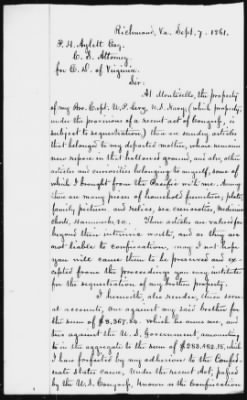 Richmond, Va. Sept. 7. 1861.
P. H. Aylett Esq.
C. S. Attorney,
for E. D. of Virginia.
Sir:
At Monticello, the property
of my Bro. Capt. U. P. Levy, U.S. Navy, (which property,
under the provisions of a recent act of Congress, is
subject to sequestration,) there are sundry articles
that belonged to my departed mother, whose remains
now repose in that hallowed ground, and also, other
articles and curiosities belonging to myself, some of
which I brought from the Pacific with me. Among
these are many pieces of household furniture, plate,
family pictures and relics, sea curiosities, medicine
chest, hammocks &c. These articles are valued for
beyond their intrinsic worth, and as they are
not liable to confiscation, may I not hope
you will cause them to be preserved and ex-
cepted from the proceedings you may institute
for the sequestration of my brother's property.
I herewith, also, render, when soon
at account, one against my said brother for
the sum of $8,367. which he owes me, and
two against the U. S. Government, amounting,
in the aggregate to the sum of $283,482.15, which
I has forfeited by my adherence to the Confed-
erate States cause. Under the recent Act, passed
by the U.S. Congress, known as the Confiscation